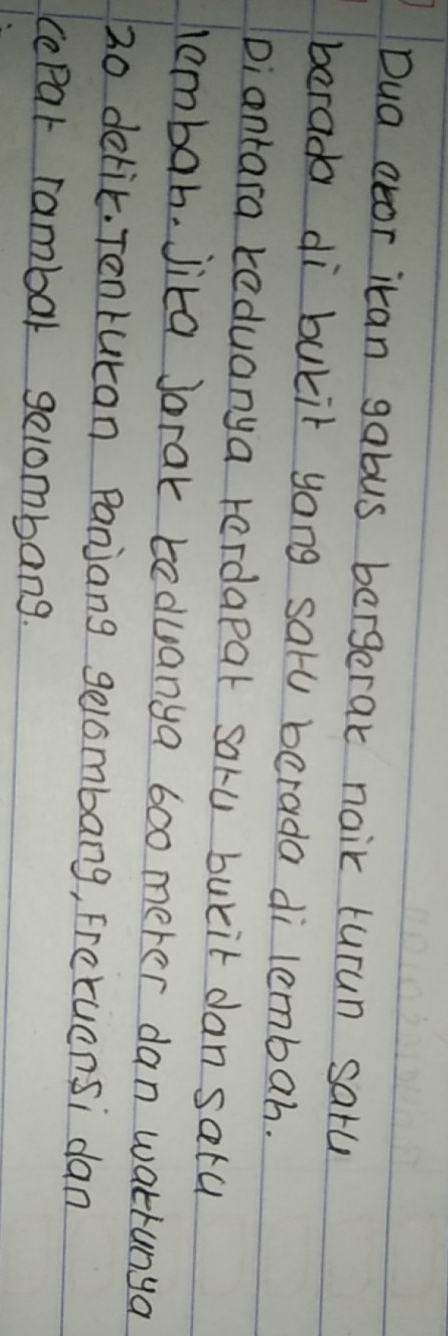 Dua ekor ikan gabus bergerak naik turun satu
berada di bukit yang satu berada di lembah.
Diantara keduanya terdapat satu bukit dan satu
lembah. Jika jarak keduanya 600 meter dan waktunya
20 detik. Tentukan Panjang gelombang, Frekuensi dan
cepat rambat gelombang.